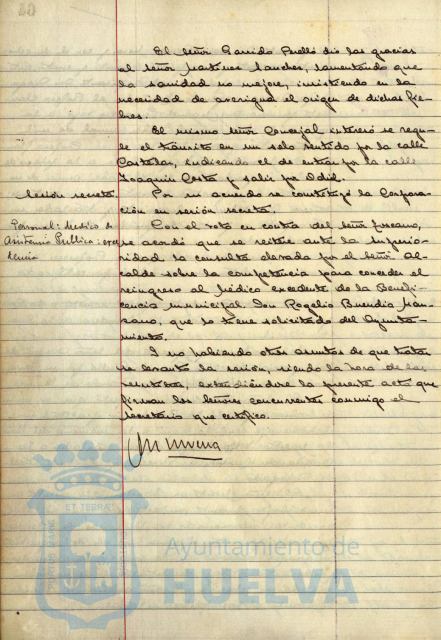 El señor Garrido Perelló dió las gracias
al señor Martinez Sanchez, lamentando que
la sanidad no mejore, insistiendo en la
necesidad de averigua el origen de dichas fie-
bres.
El mismo señor Concejal interesó se regu-
le el tránsito en un solo sentido por la calle
Castelar, indicando el de entrar por la calle
Joaquin Costa y salir por Odiel.
Sesión secreta.
Por su acuerdo se constituyó la Corpora-
ción en sesión secreta.
Personal: Medico de
Asistencia Publica: exce
dencia
Con el voto en contra del señor
se acordó que se reitere ante la Superio-
ridad la consulta elevada por el señor Al-
calde sobre la competencia para conceder el
reingreso al Médico excedente de la Benefi-
cencia municipal Don Rogelio Buendia Man-
zano, que lo tiene solicitado del Ayunta-
miento.
I no habiendo otros asuntos de que tratar
se levantó la sesión, siendo la hora de las
extendiéndose la presente acta que
firman los señores concurrentes conmigo el
Secretario que certifico.
ET TERRAE
Ayuntamiento de
HUELVA